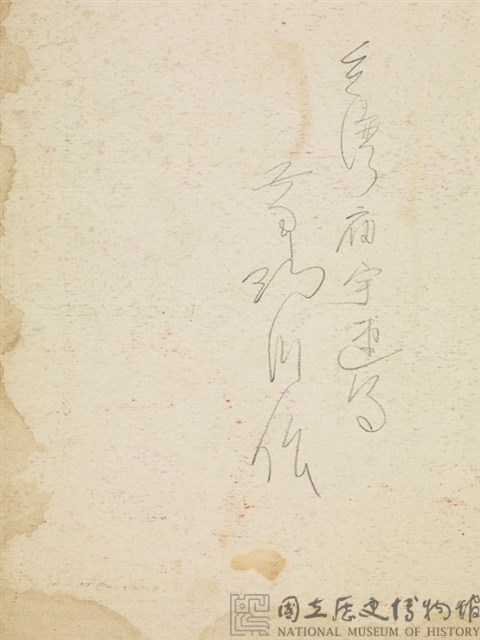 台湾廟宇速写
曾現澄作
國立歷史博物館
NATIONAL MUSEUM OF HISTORY